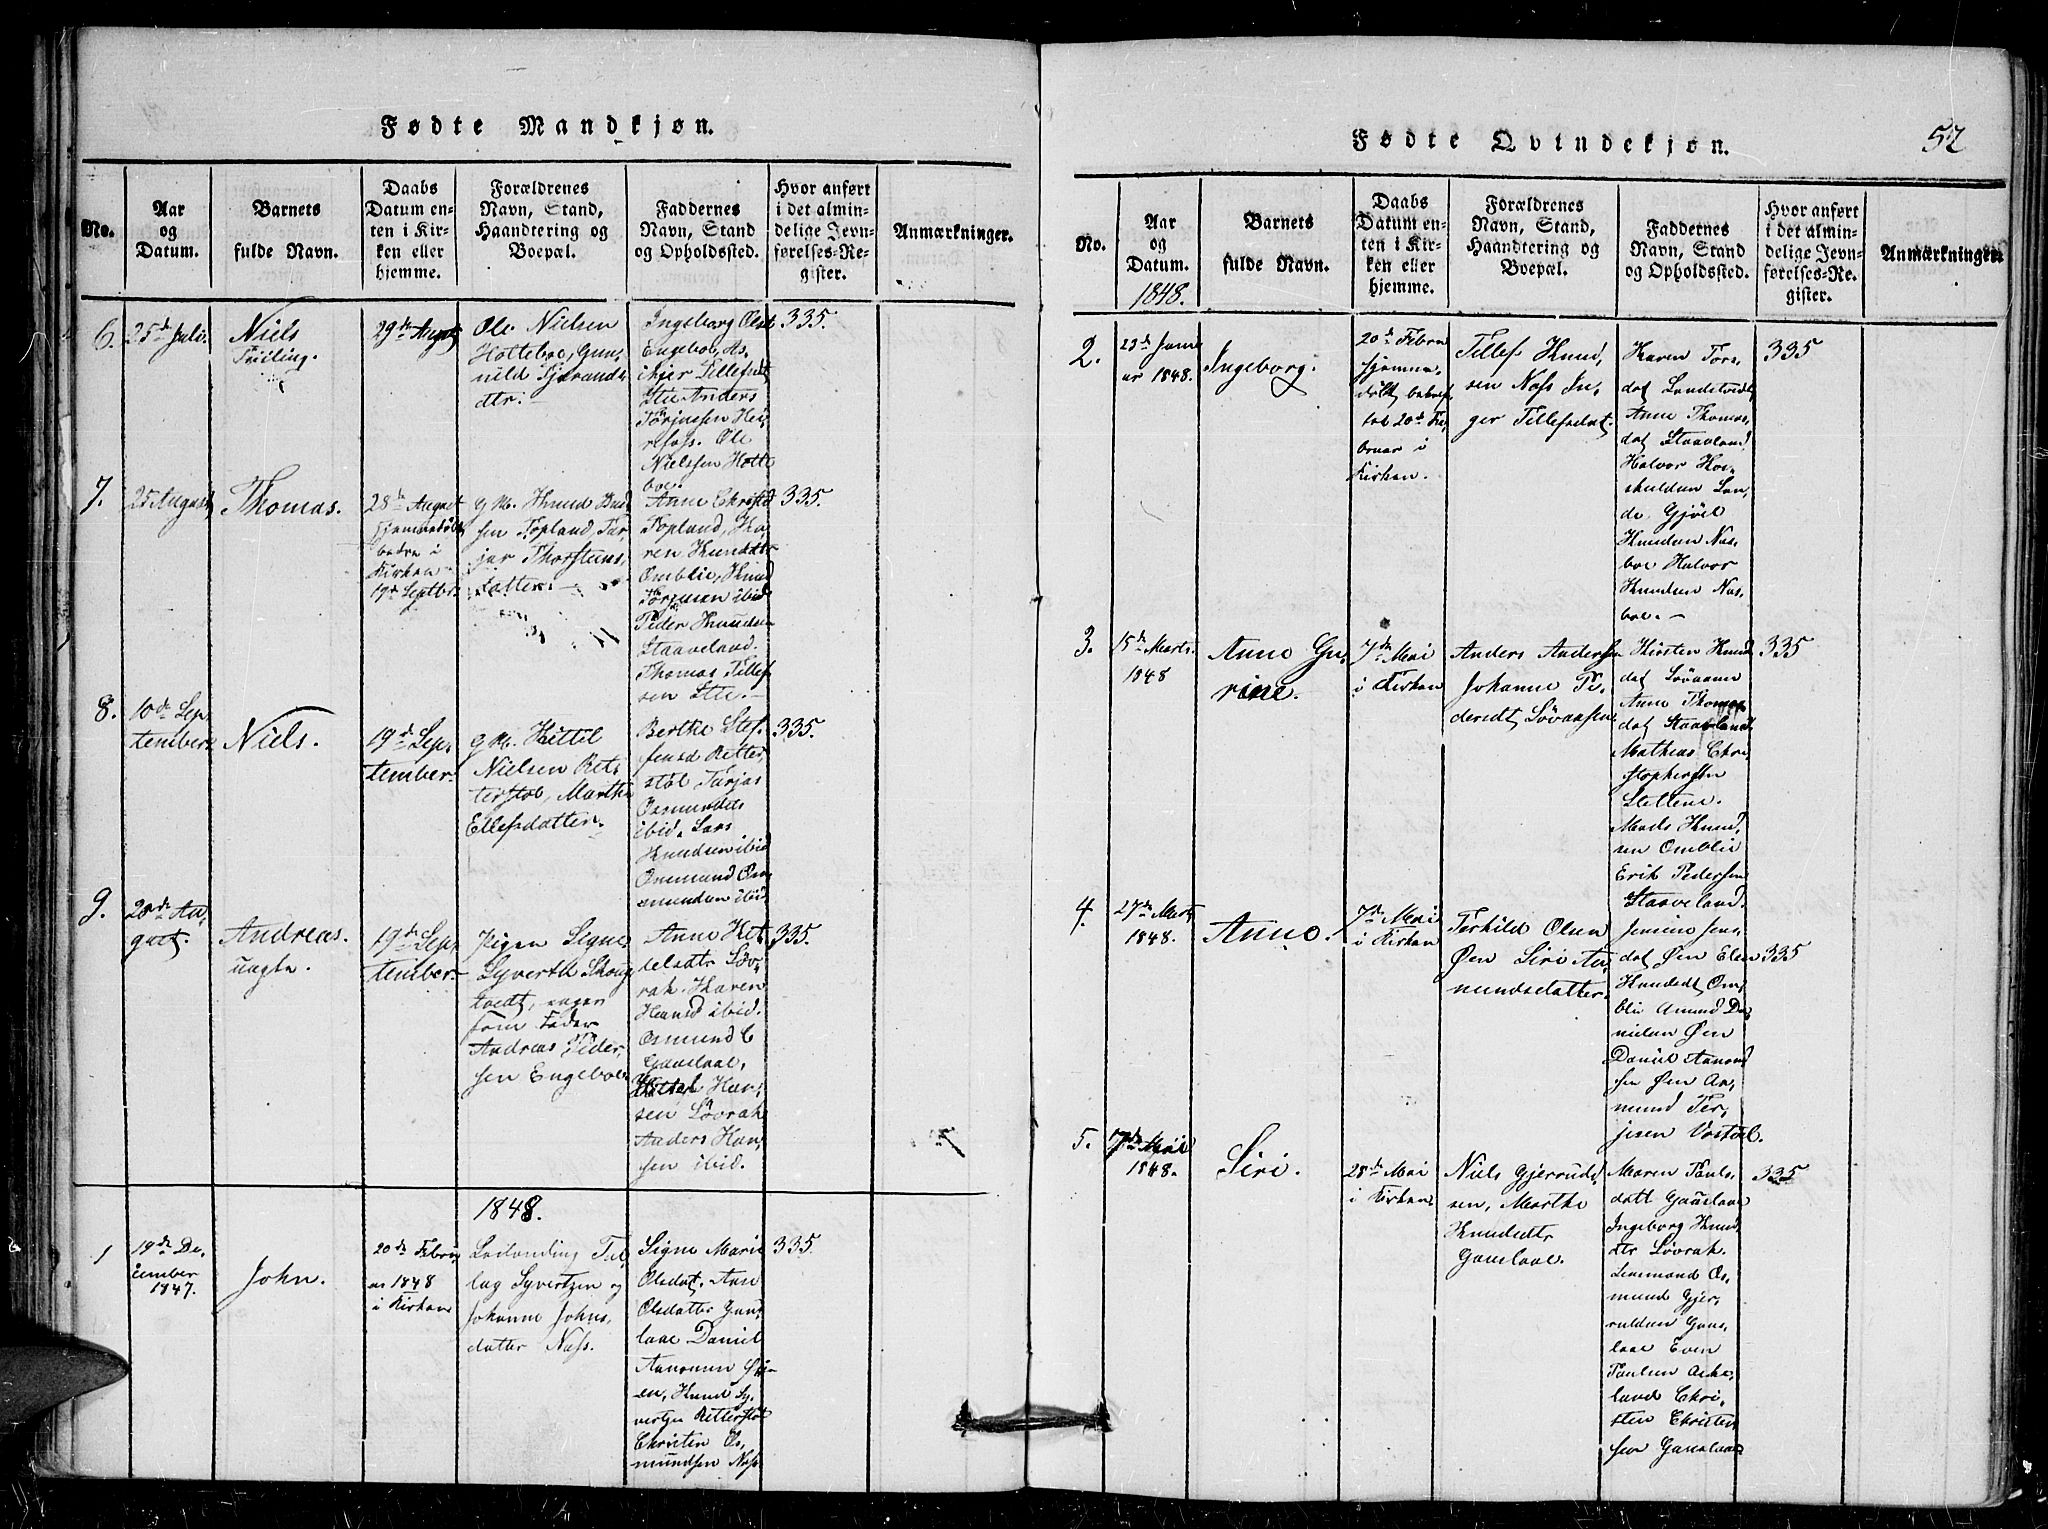 Fødte Mandkjøn.
No.
Aar
og
Datum.
Barnets
fulde Navn.
Daabs
Datum en-
ten i Kir-
ken eller
hjemme.
Forældrenes
Navn, Stand,
Haandtering og
Boepæl.
Faddernes
Navn, Stand
og Opholdssted.
Hvor anført
i det almin-
delige Jevn-
førelses-Re-
gister.
Anmærkninger.
6.
25de Juli.
Niels
29de August
Ole Nielsen
Hotteboe, Gun,
nild Gjerauds,
dtr.
Ingeborg Olsd
Engeboe, As,
Tillefsdt
Anders
Ole
Nielssen Hotte
boe.
335.
7.
25 August
Thomas.
28de August
hjemmedöbt
i
Kirken
19de Septbr.
G. M. Knud
sen Topland, Tar,
jer Thorstens,
datter.
Anne Christ
Topland, Ka,
ren Knudsdtr
Omblie, Knud
ibid
Peder Knudsen
Staaveland.
Thomas Tillef
sen
335.
8.
10de Sep,
tember
Niels.
19de Sep,
tember
G. M. Kittil
Nielsen Ret,
terstöl, Marthe
Ellefsdatter.
Berthe Stef,
fensd Retter,
stöl Tarjas
Osmundsdt
ibid. Lars
Knudsen ibid
Osmund Os,
mundsen ibid
335.
9.
20de Au,
gust.
Andreas.
uægte.
19de Sep,
tember
Pigen Signe
Syverth Skoug
tvedt,
som Fader
Andreas Peder,
sen Engeboe
Anne Ket,
telsdtr Löv,
rak. Karen
Hansd ibid.
Osmund C
Gauslaae,
Kittel Han,
sen Lövrak
Anders Han,
sen ibid.
335.
1848.
1
19de De,
cember
1847.
John.
20de Febru,
ar 1848
i Kirken
Leilending Tel,
lag Syvertzen og
Johanne Johns,
datter Næss.
Signe Marie
Olsdat. Ann
Olsdatter Gaus,
laae Daniel
Aanonsen Øi,
en, Knud Sy,
vertsen Retterstöl
Christen Os,
mundsen Næs
335.
Fødte Qvindekjøn.
52
No.
Aar
og
Datum.
1848.
Barnets
fulde Navn.
Daabs
Datum en-
ten i Kir-
ken eller
hjemme.
Forældrenes
Navn, Stand,
Haandtering og
Boepæl.
Faddernes
Navn, Stand
og Opholdssted.
Hvor anført
i det almin-
delige Jevn-
førelses-Re-
gister.
Anmærkninger.
2.
23de Janu
ar 1848.
Ingeborg.
20de Febru
hjemme,
döbt bekræf
tet 20de Fe
bruar i
Kirken.
Tillef Knud,
sen Næss In,
ger Tillefsdat.
Karen Tors,
dat Landstvedt
Anne Thomas,
dat Staaveland
Halvor Ho,
skuldsen Lan,
de, Gjöel
Knudsen Næs,
boe Halvor
Knudsen Næs,
boe.
335
3.
15de Marts.
1848
Anne Gu,
rine.
7de Mai
i Kirken
Anders Andersen
Johanne Pe,
dersdt Lövaasen
Kirsten Knud
dat Lövaasen
Anne Thomas
dat Staaveland
Mathias Chri,
stophersen
Slettene.
Mads Knud,
sen Omblie
Erik Pedersen
Staaveland.
335
4.
27de Marts
1848.
Anne.
7de Mai
i Kirken
Terkild Olsen
Øen Siri Aa,
mundsdatter.
Jensine Jens,
dat Øen Elen
Knudsdt Om,
blie Amund Da,
nielsen Øen
Daniel Aanond
sen Øen Aa,
mund Ter,
jesen Vostöl.
335
5.
17de April
1848.
Siri.
28de Mai
i Kirken
Niels Gjeruld,
sen, Marthe
Knudsdt
Gauslaae.
Maren Pauls,
datt Gauslaae
Ingeborg Knud
dtr Lövrak.
Lensmand Os,
mund Gjer,
uldsen Gaus,
laae Even
Paulsen Aske,
land Chri,
sten Christen
sen Gauslaae
335